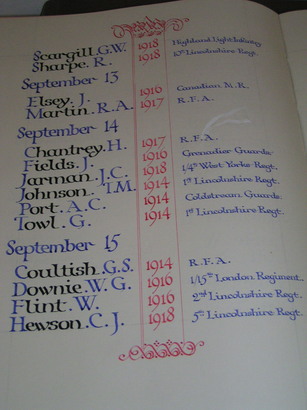 Scargill. G.W. 1918 Highland Light Infantry
Sharpe. R. 1918 10th Lincolnshire Regt.
September 13
Elsey. J. 1916 Canadian M.R.
Martin. R.A. 1917 R.F.A.
September 14
Chantrey. H. 1917 R.F.A.
Fields. J. 1916 Grenadier Guards
Jarman. J.C. 1918 1/4th West Yorks Regt.
Johnson. I.M. 1914 1st Lincolnshire Regt.
Port. A.C. 1914 Coldstream Guards
Towl. G. 1914 1st Lincolnshire Regt.
September 15
Coultish. G.S. 1914 R.F.A.
Downie. W.G. 1916 1/15th London Regiment.
Flint. W. 1916 2nd Lincolnshire Regt.
Hewson. C.J. 1918 5th Lincolnshire Regt.